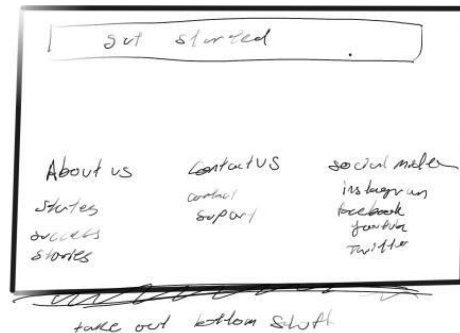 get started
About us
states
success
stories
Contact US
contact
suport
social media
instagram
facebook
youtube
Twitter
take out bottom stuff